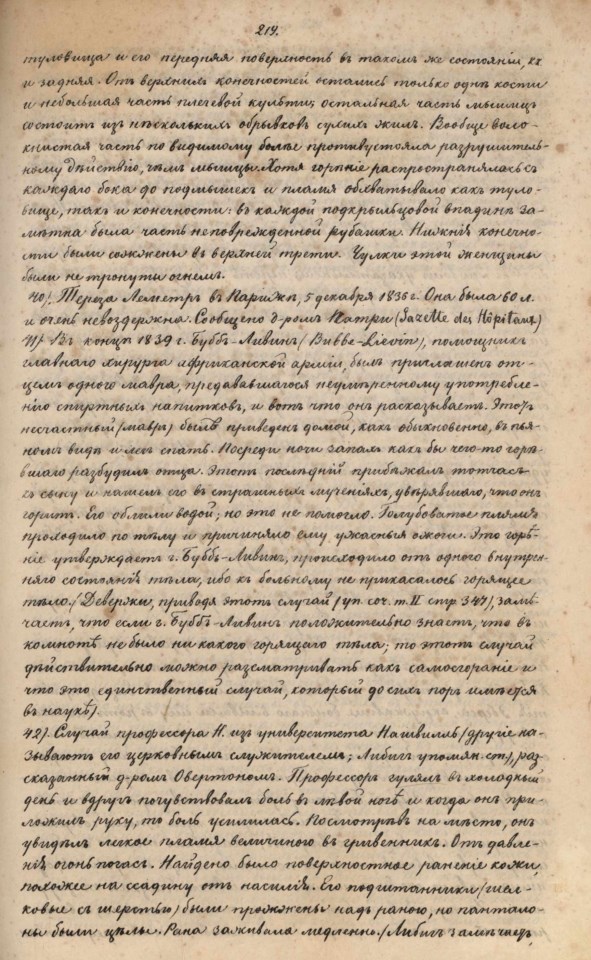 219.
туловища и его передняя поверхность въ такомъ же состояніи, какъ
и задняя. Отъ верхнихъ конечностей остались только однѣ кости
и небольшая часть плечевой культи; остальная часть мышицъ
состоитъ изъ нѣсколькихъ обрывковъ сухихъ жилъ. Вообще воло-
книстая часть по видимому болѣе противустояла разрушитель-
ному дѣйствію, чѣмъ мышцы. Хотя горѣніе распространялась съ
каждаго бока до подмышекъ и пламя обхватывало какъ туло-
вище, такъ и конечности: въ каждой подкрыльцовой впадинѣ за-
мѣтна была часть неповрежденной рубашки. Нижнія конечно-
сти были сожжены въ верхней трети. Чулки этой женщины
были не тронуты огнемъ.
40). Тереза Леметръ въ Парижѣ, 5 декабря 1836 г. Она была 60 л.
и очень невоздержна. Сообщено д-ромъ Патри (Gazette des Hôpitaux)
41). Въ концѣ 1839 г. Буббъ-Ливинъ (Bubbe-Lievin), помощникъ
главнаго хирурга африканской арміи, былъ приглашенъ от-
цемъ одного мавра, предававшагося неумѣренному употребле-
нію спиртныхъ напитковъ, и вотъ что онъ расказываетъ. Этотъ
несчастный (мавръ) былъ приведенъ домой, какъ обыкновенно, въ пья-
номъ видѣ и легъ спать. Посреди ночи запахъ какъ бы чего-то горѣ-
вшаго разбудилъ отца. Этотъ послѣдній прибѣжалъ тотчасъ
къ сыну и нашелъ его въ страшныхъ мученіяхъ, увѣрявшаго, что онъ
горитъ. Его облили водой; но это не помогло. Голубоватое пламя
проходило по тѣлу и причиняло ему ужасныя ожоги. Это горѣ-
ніе утверждаетъ г. Буббъ-Ливинъ, происходило отъ одного внутрен-
няго состоянія тѣла, ибо къ больному не прикасалось горящее
тѣло. (Девержи, приводя этотъ случай (уп. соч. т. II стр 347), замѣ-
чаетъ, что если г. Буббъ-Ливинъ положительно знаетъ, что въ
комнотѣ не было ни какого горящаго тѣла; то этотъ случай
дѣйствительно можно разсматривать какъ самосгораніе и
что это единственный случай, который до сихъ поръ имѣется
въ наукѣ).
42). Случай профессора H. изъ университета Нашвилль (другіе на-
зываютъ его церковнымъ служителемъ; Либигъ упомян. ст.), раз-
сказанный д-ромъ Овертономъ. Профессоръ гулялъ въ холодный
день и вдругъ почувствовалъ боль въ лѣвой ногѣ и когда онъ при-
ложилъ руку, то боль усилилась. Посмотрѣвъ на мѣсто, онъ
увидѣлъ легкое пламя величиною въ гривенникъ. Отъ давле-
нія огонь погасъ. Найдено было поверхностное раненіе кожи,
похожее на ссадину отъ насилія. Его подштанники (шел-
ковые съ шерстью) были прожжены надъ раною, но пантало-
ны были цѣлы. Рана заживала медленно. (Либигъ замѣчаетъ,